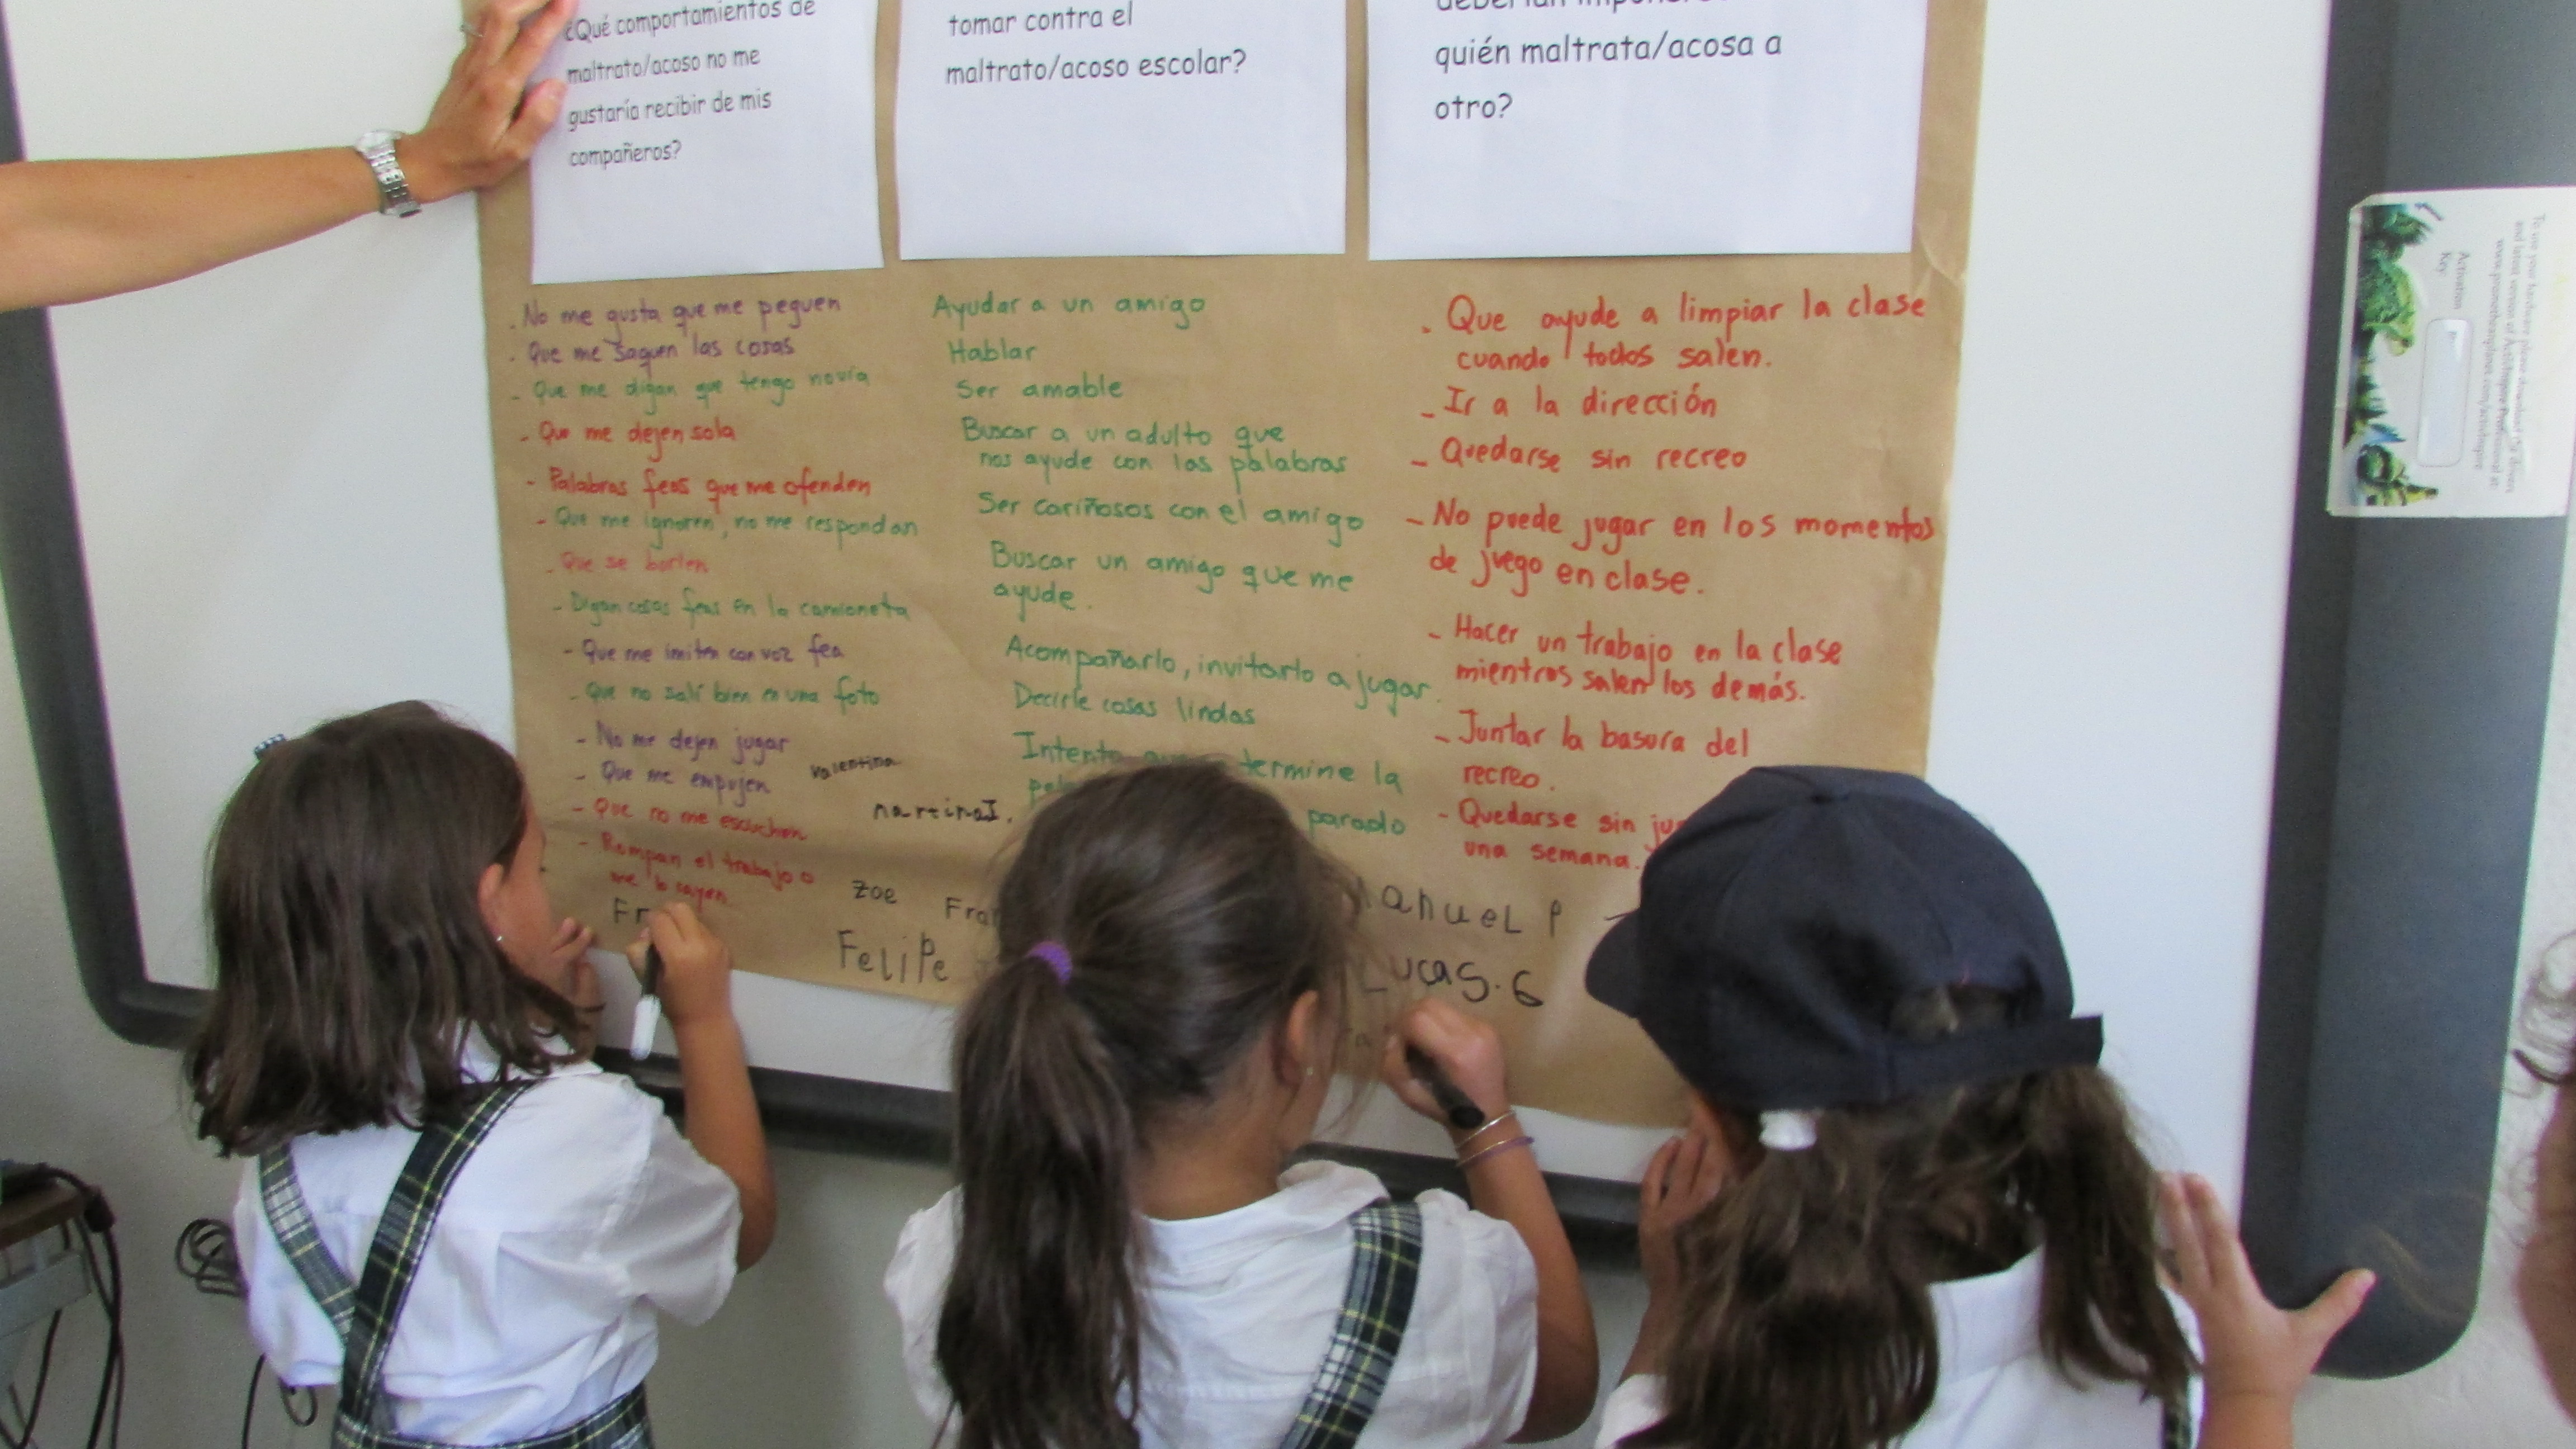 ¿Qué comportamientos de
maltrato/acoso no me
gustaría recibir de mis
compañeros?
tomar contra el
maltrato/acoso escolar?
quién maltrata/acosa a
otro?
. No me gusta que me peguen
. Que me saquen las cosas
- Que me digan que tengo novia
- Que me dejen sola
- Palabras feas que me ofenden
- Que me ignoren, no me respondan
- Que se burlen
- Digan cosas feas en la camioneta
- Que me imiten con voz fea
- Que no salí bien en una foto
- No me dejen jugar
- Que me empujen
- Que no me escuchen
- Rompan el trabajo o
me lo rayen
Ayudar a un amigo
Hablar
Ser amable
Buscar a un adulto que
nos ayude con las palabras
Ser cariñosos con el amigo
Buscar un amigo que me
ayude.
Acompañarlo, invitarlo a jugar.
Decirle cosas lindas
Intento termine la
parado
. Que ayude a limpiar la clase
cuando todos salen.
- Ir a la dirección
- Quedarse sin recreo
- No puede jugar en los momentos
de juego en clase.
- Hacer un trabajo en la clase
mientras salen los demás.
- Juntar la basura del
recreo.
- Quedarse sin
una semana.
valentina
martina I.
zoe
Fran
Fr
Felipe
manueL P
Lucas. G
Activation
Key